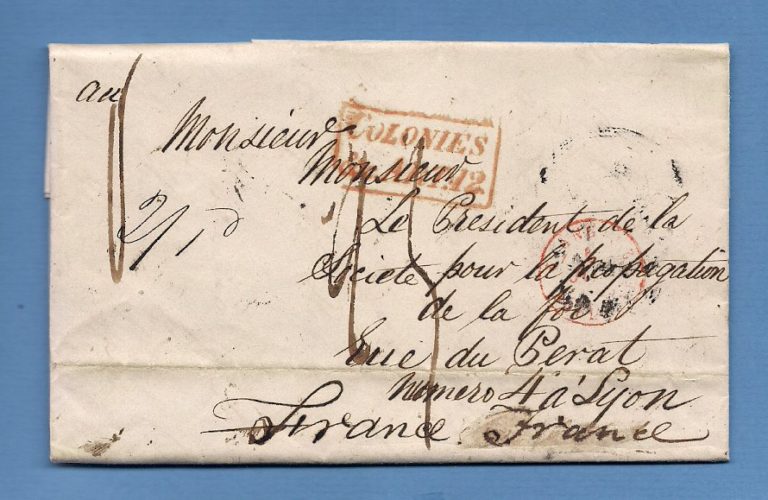 au
Monsieur
COLONIES
Monsieur
2/1d
Le President de la
Societé pour la propagation
de la foi
Rue du Perat
Numero 4 à Lyon
France France